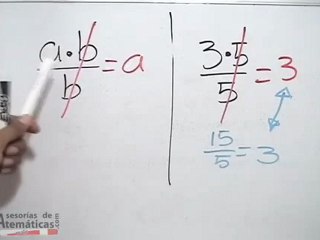 a·b/b = a
3·5/5 = 3
15/5 = 3
Asesorías de
Matemáticas